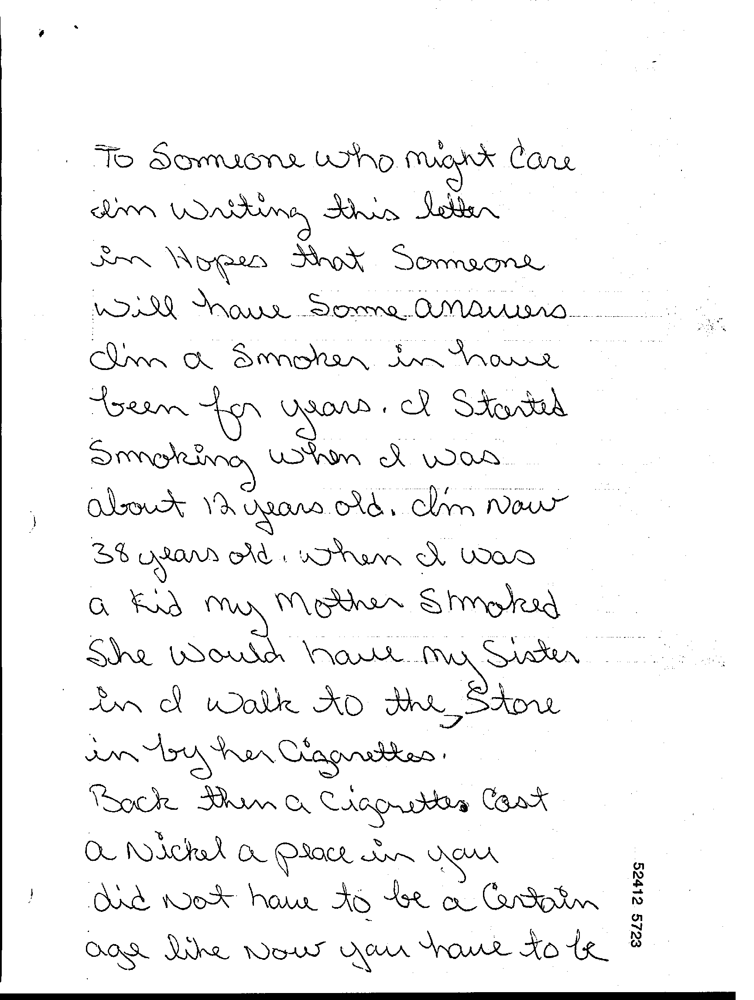 To Someone who might Care
I'm Writing this letter
in Hopes that Someone
will have Some answers
I'm a Smoker in have
been for years. I Started
Smoking when I was
about 12 years old. I'm Now
38 years old. when I was
a Kid my Mother Smoked
She would have my Sister
in I walk to the Store
in by her Cigarettes.
Back then a Cigarettes Cost
a Nickel a peace in you
did Not have to be a Certain
age like Now you have to be
52412 5723